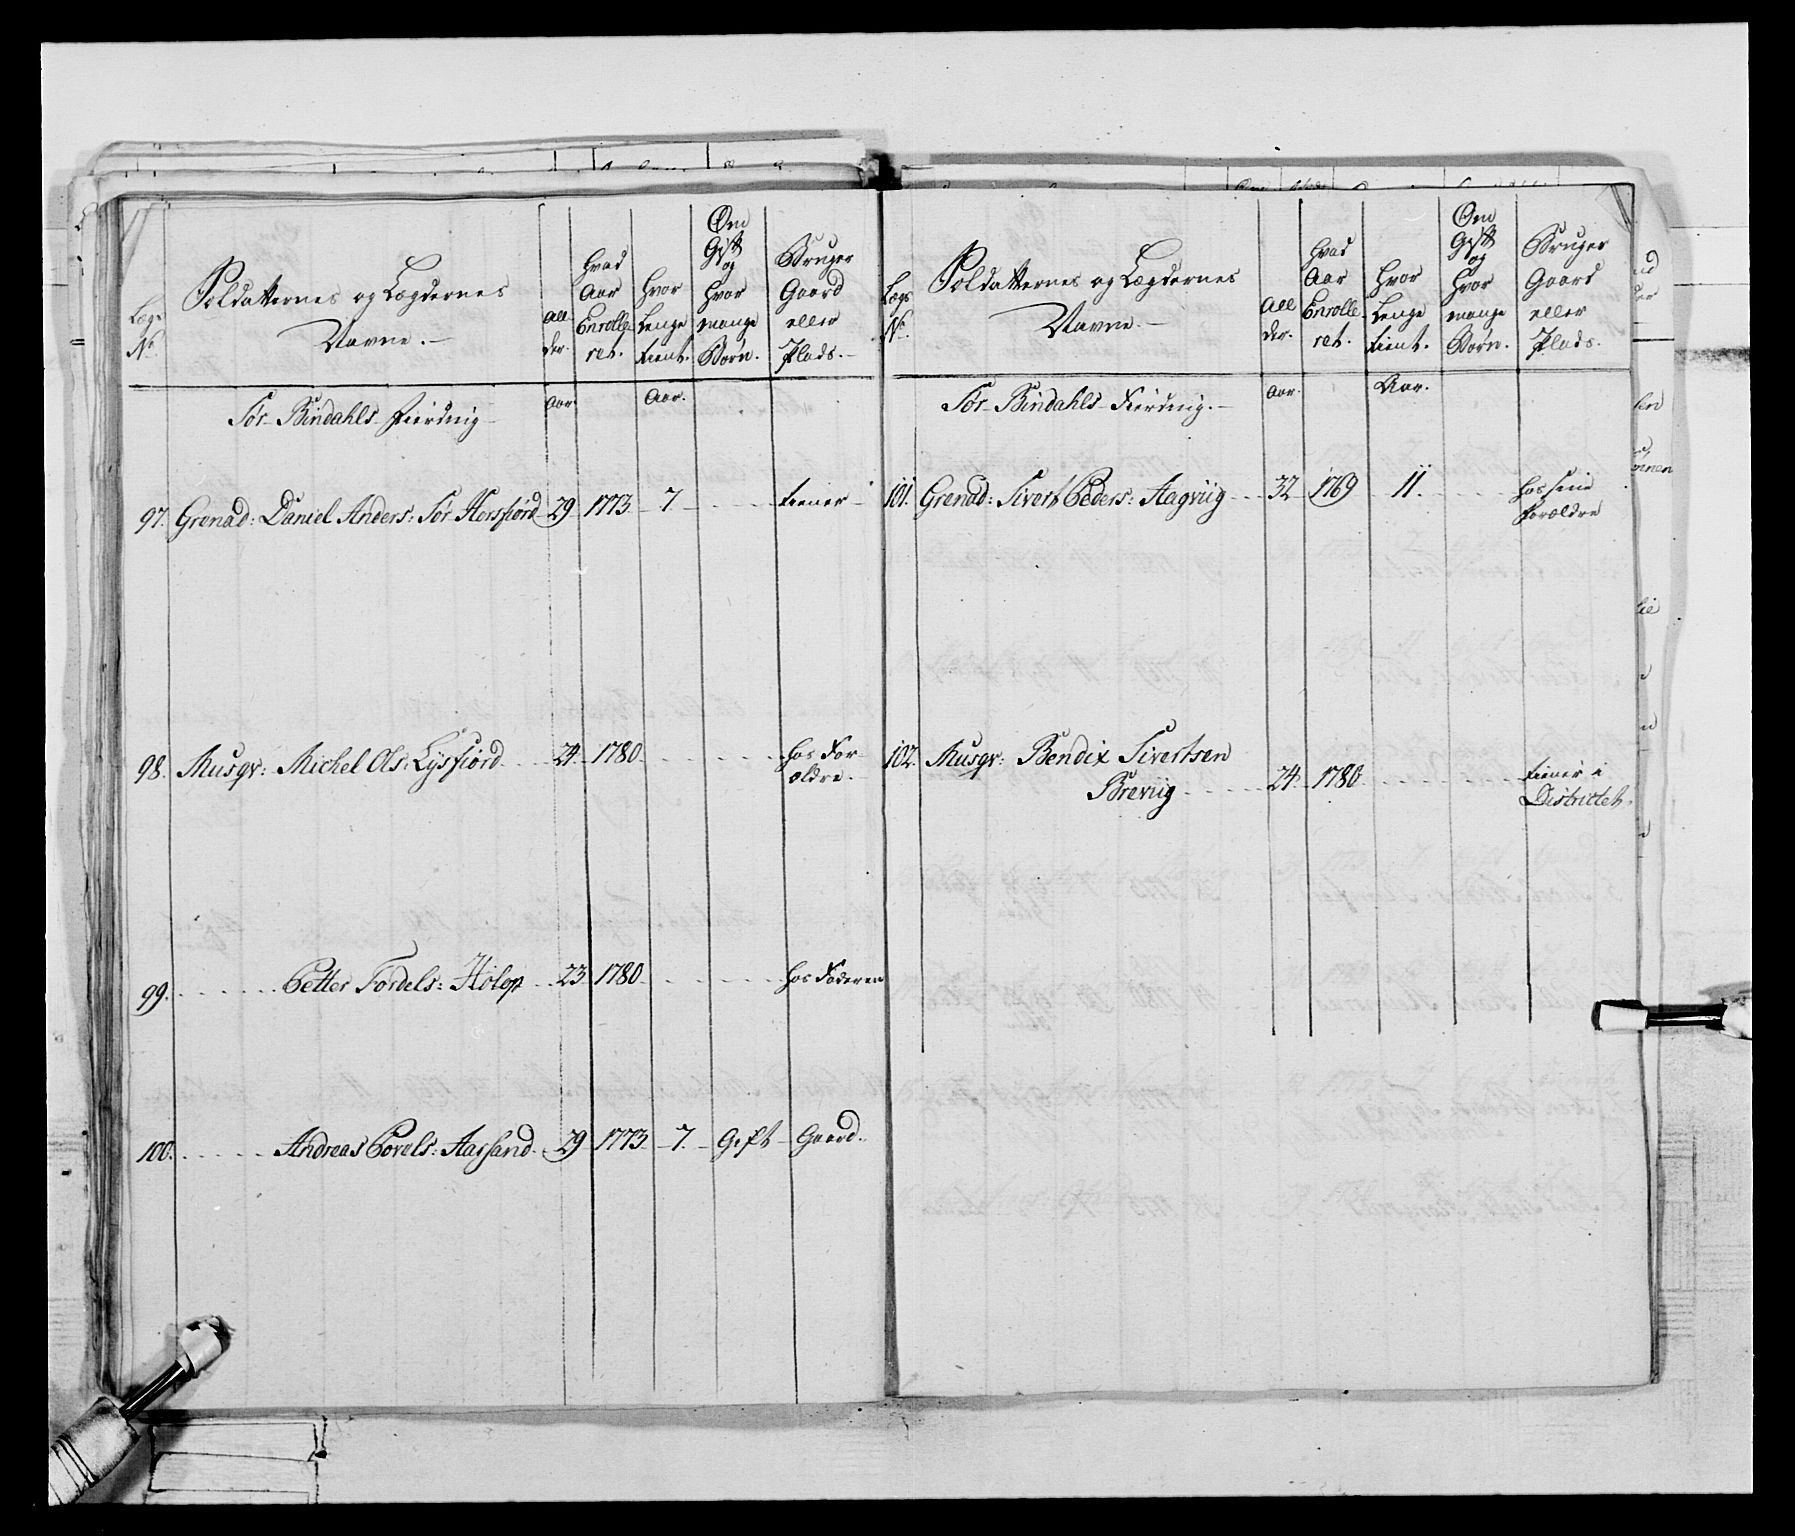 Lægs No.
Soldatternes og Lægdernes Navne.
All der.
Hvad Aar Enrolle ret.
Hvor Lenge tient.
Om Gift og Hvor mange Børn.
Bruger Gaard eller Plads.
Aar. Aar.
Sør-Bindahls-Fierding
97. Grenad: Daniel Anders: Sør Horsfiord 29 1773 7. tiener
98. Musqv: Michel Ols: Lysfiord 24 1780 hos For
ældre.
99. Petter Fordels: Holop 23 1780 hos Faderen
100. Andreas Povels: Aarsand 29 1773 7. Gift Gaard.
Lægs No.
Soldatternes og Lægdernes Navne.
All der.
Hvad Aar Enrolle ret.
Hvor Lenge tient.
Om Gift og Hvor mange Børn.
Bruger Gaard eller Plads.
Aar. Aar.
Sør-Bindahls-Fierding.
101. Grenad: Sivert Peders: Aagviig 32 1769 11. hos sine
Forældre
102. Musqv: Bendix Sivertsen
Breviig 24. 1780 tiener i
Districtet.